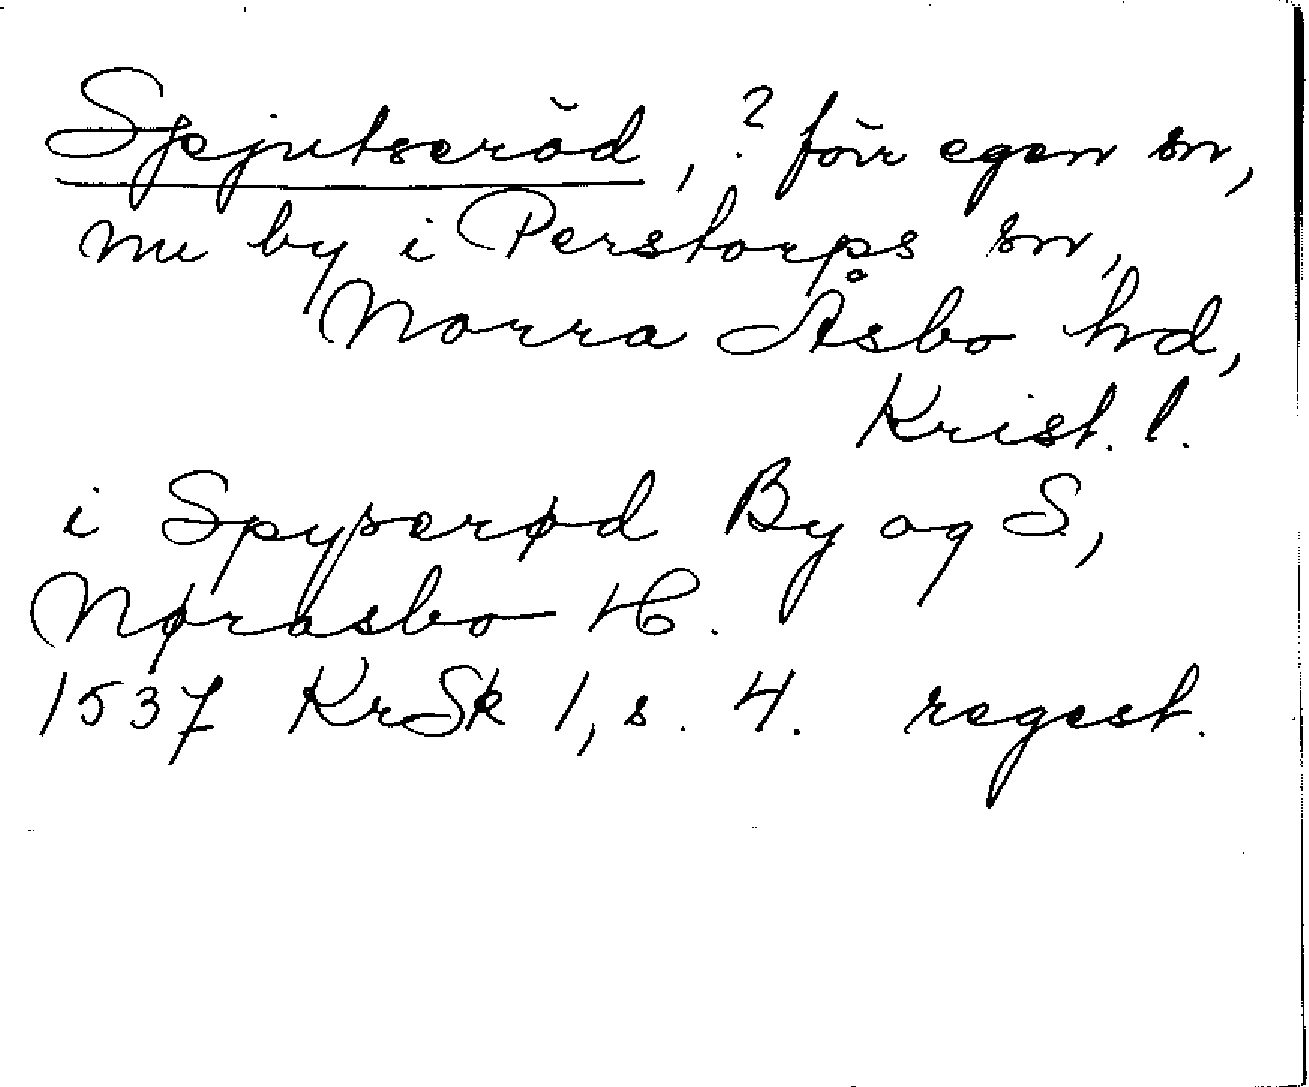 Spjutseröd, ? förr egen sn,
nu by i Perstorps sn,
Norra Åsbo hd,
Krist. l.
i Spyperød By og S.,
Nørasbo H.
1537 KrSk 1, s. 4. regest.